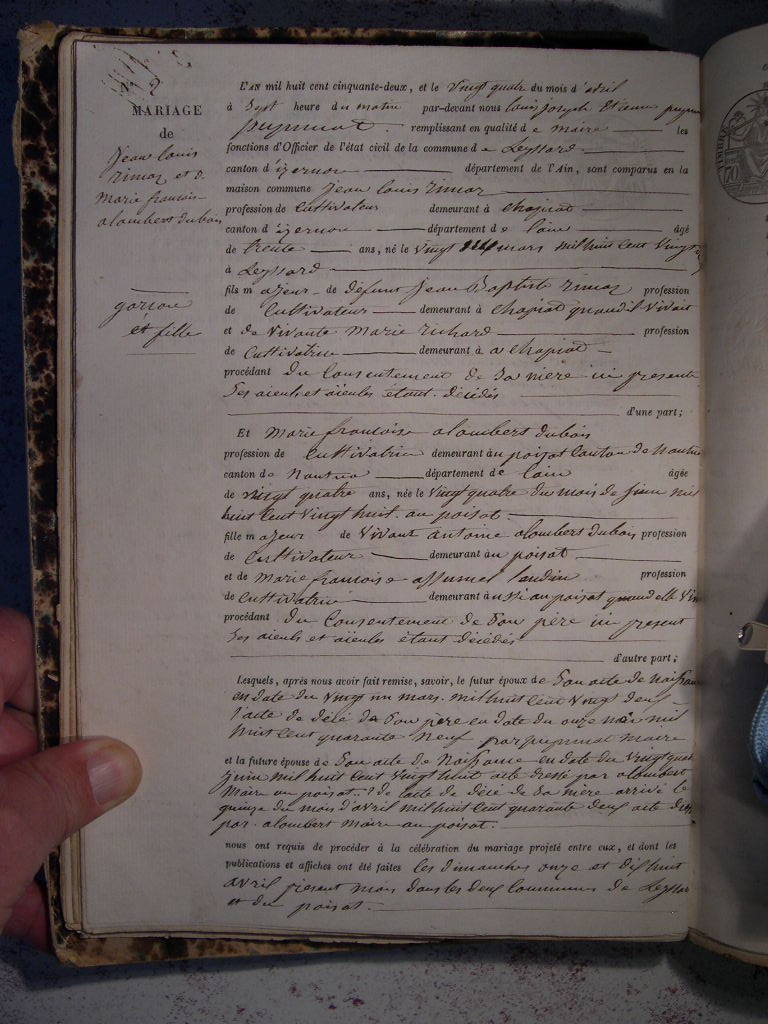 N° 2
MARIAGE
de
Jean louis
rimoz et de
marie francoise
alombert dubois
garcon
et fille
L'AN mil huit cent cinquante-deux, et le vingt quatre du mois d'avril
à Sept heure du matin par-devant nous louis joseph Etienne
puyminat remplissant en qualité de maire les
fonctions d'Officier de l'état civil de la commune de Leyssard
canton d'izernore département de l'Ain, sont comparus en la
maison commune jean louis rimoz
profession de cultivateur demeurant à chapiat
canton d'izernore département de lain âgé
de trente ans, né le vingt mars mil huit cent vingt
à Leyssard
fils majeur de défunt jean Baptiste rimoz profession
de cultivateur demeurant à chapiat quand il vivait
et de vivante marie richard profession
de cultivatrice demeurant à a chapiat
procédant du consentement de sa mère ici presente
Ses aieuls et aïeules étant décédés
d'une part;
Et marie francoise alombert dubois
profession de cultivatrice demeurant au poisat canton de nantua
canton de nantua département de lain âgée
de vingt quatre ans, née le vingt quatre du mois de juin mil
huit cent vingt huit au poisat
fille majeur de vivant antoine alombert dubois profession
de cultivateur demeurant au poisat
et de marie francoise profession
de cultivatrice demeurant aussi au poisat quand elle
procédant du consentement de son père ici present
Ses aieuls et aïeules étant décédés
d'autre part;
Lesquels, après nous avoir fait remise, savoir, le futur époux de Son acte de naissance
en date du vingt un mars mil huit cent vingt deux
l'acte de décé de son père en date du onze mil
huit cent quarante neuf par puyminat maire
et la future épouse de Son acte de naissance en date du vingt quatre
juin mil huit cent vingt huit acte dressé par alombert
maire au poisat de l'acte de décé de sa mère arrivé le
quinze du mois d'avril mil huit cent quarante deux acte
par alombert maire au poisat.
nous ont requis de procéder à la célébration du mariage projeté entre eux, et dont les
publications et affiches ont été faites les dimanches onze et dix huit
avril présent mois dans les deux communes de Leyssard
et du poisat.
TIMBRE
70